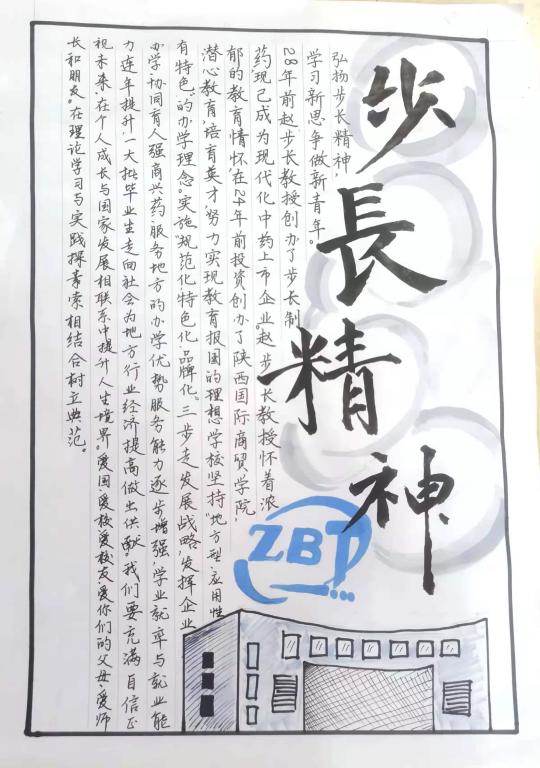 步長精神
弘扬步长精神,
学习新思争做新青年。
28年前赵步长教授创办了步长制
药现已成为现代化中药上市企业。赵步长教授怀着浓
郁的教育情怀,在24年前投资创办了陕西国际商贸学院,
潜心教育,培育英才,努力实现教育报国的理想学校坚持"地方型、应用性
有特色"的办学理念。实施"规范化、特色化、品牌化。三步走发展战略,发挥企业
办学,协同育人强商兴药、服务地方的办学优势服务能力逐步增强,学业就率与就业能
力连年提升,一大批毕业生走向社会为地方行业经济提高做出供献。我们要充满自信正
视未来,在个人成长与国家发展相联系中提升人生境界。爱国爱校爱校友爱你们的父母、爱师
长和朋友。在理论学习与实践探素索相结合树立典范。
ZBT